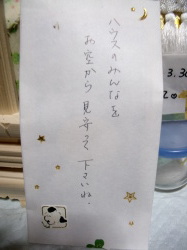 ハウスのみんなを
お空から 見守って 下さいね.
3.30
20